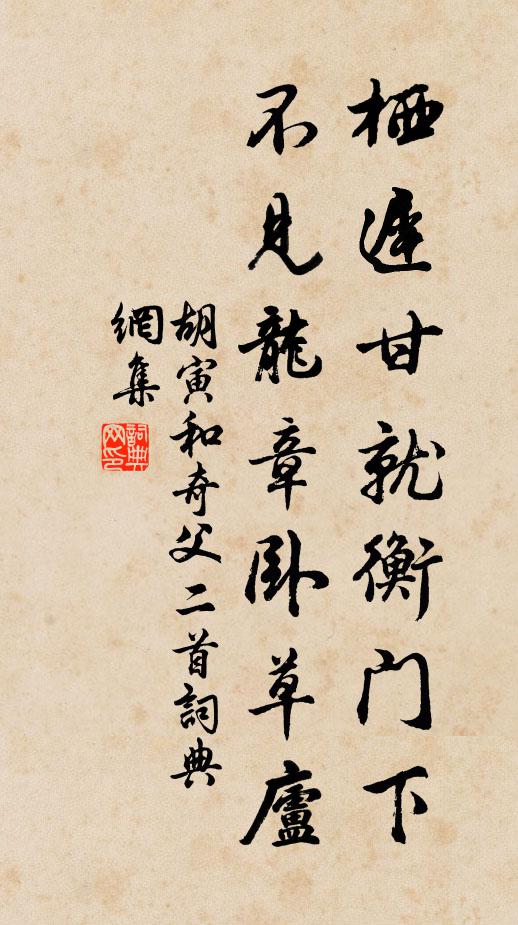 栖遲甘就衡门下
不見龍章卧草廬
胡寅和奇父二首詞典
網集
詞典
网印